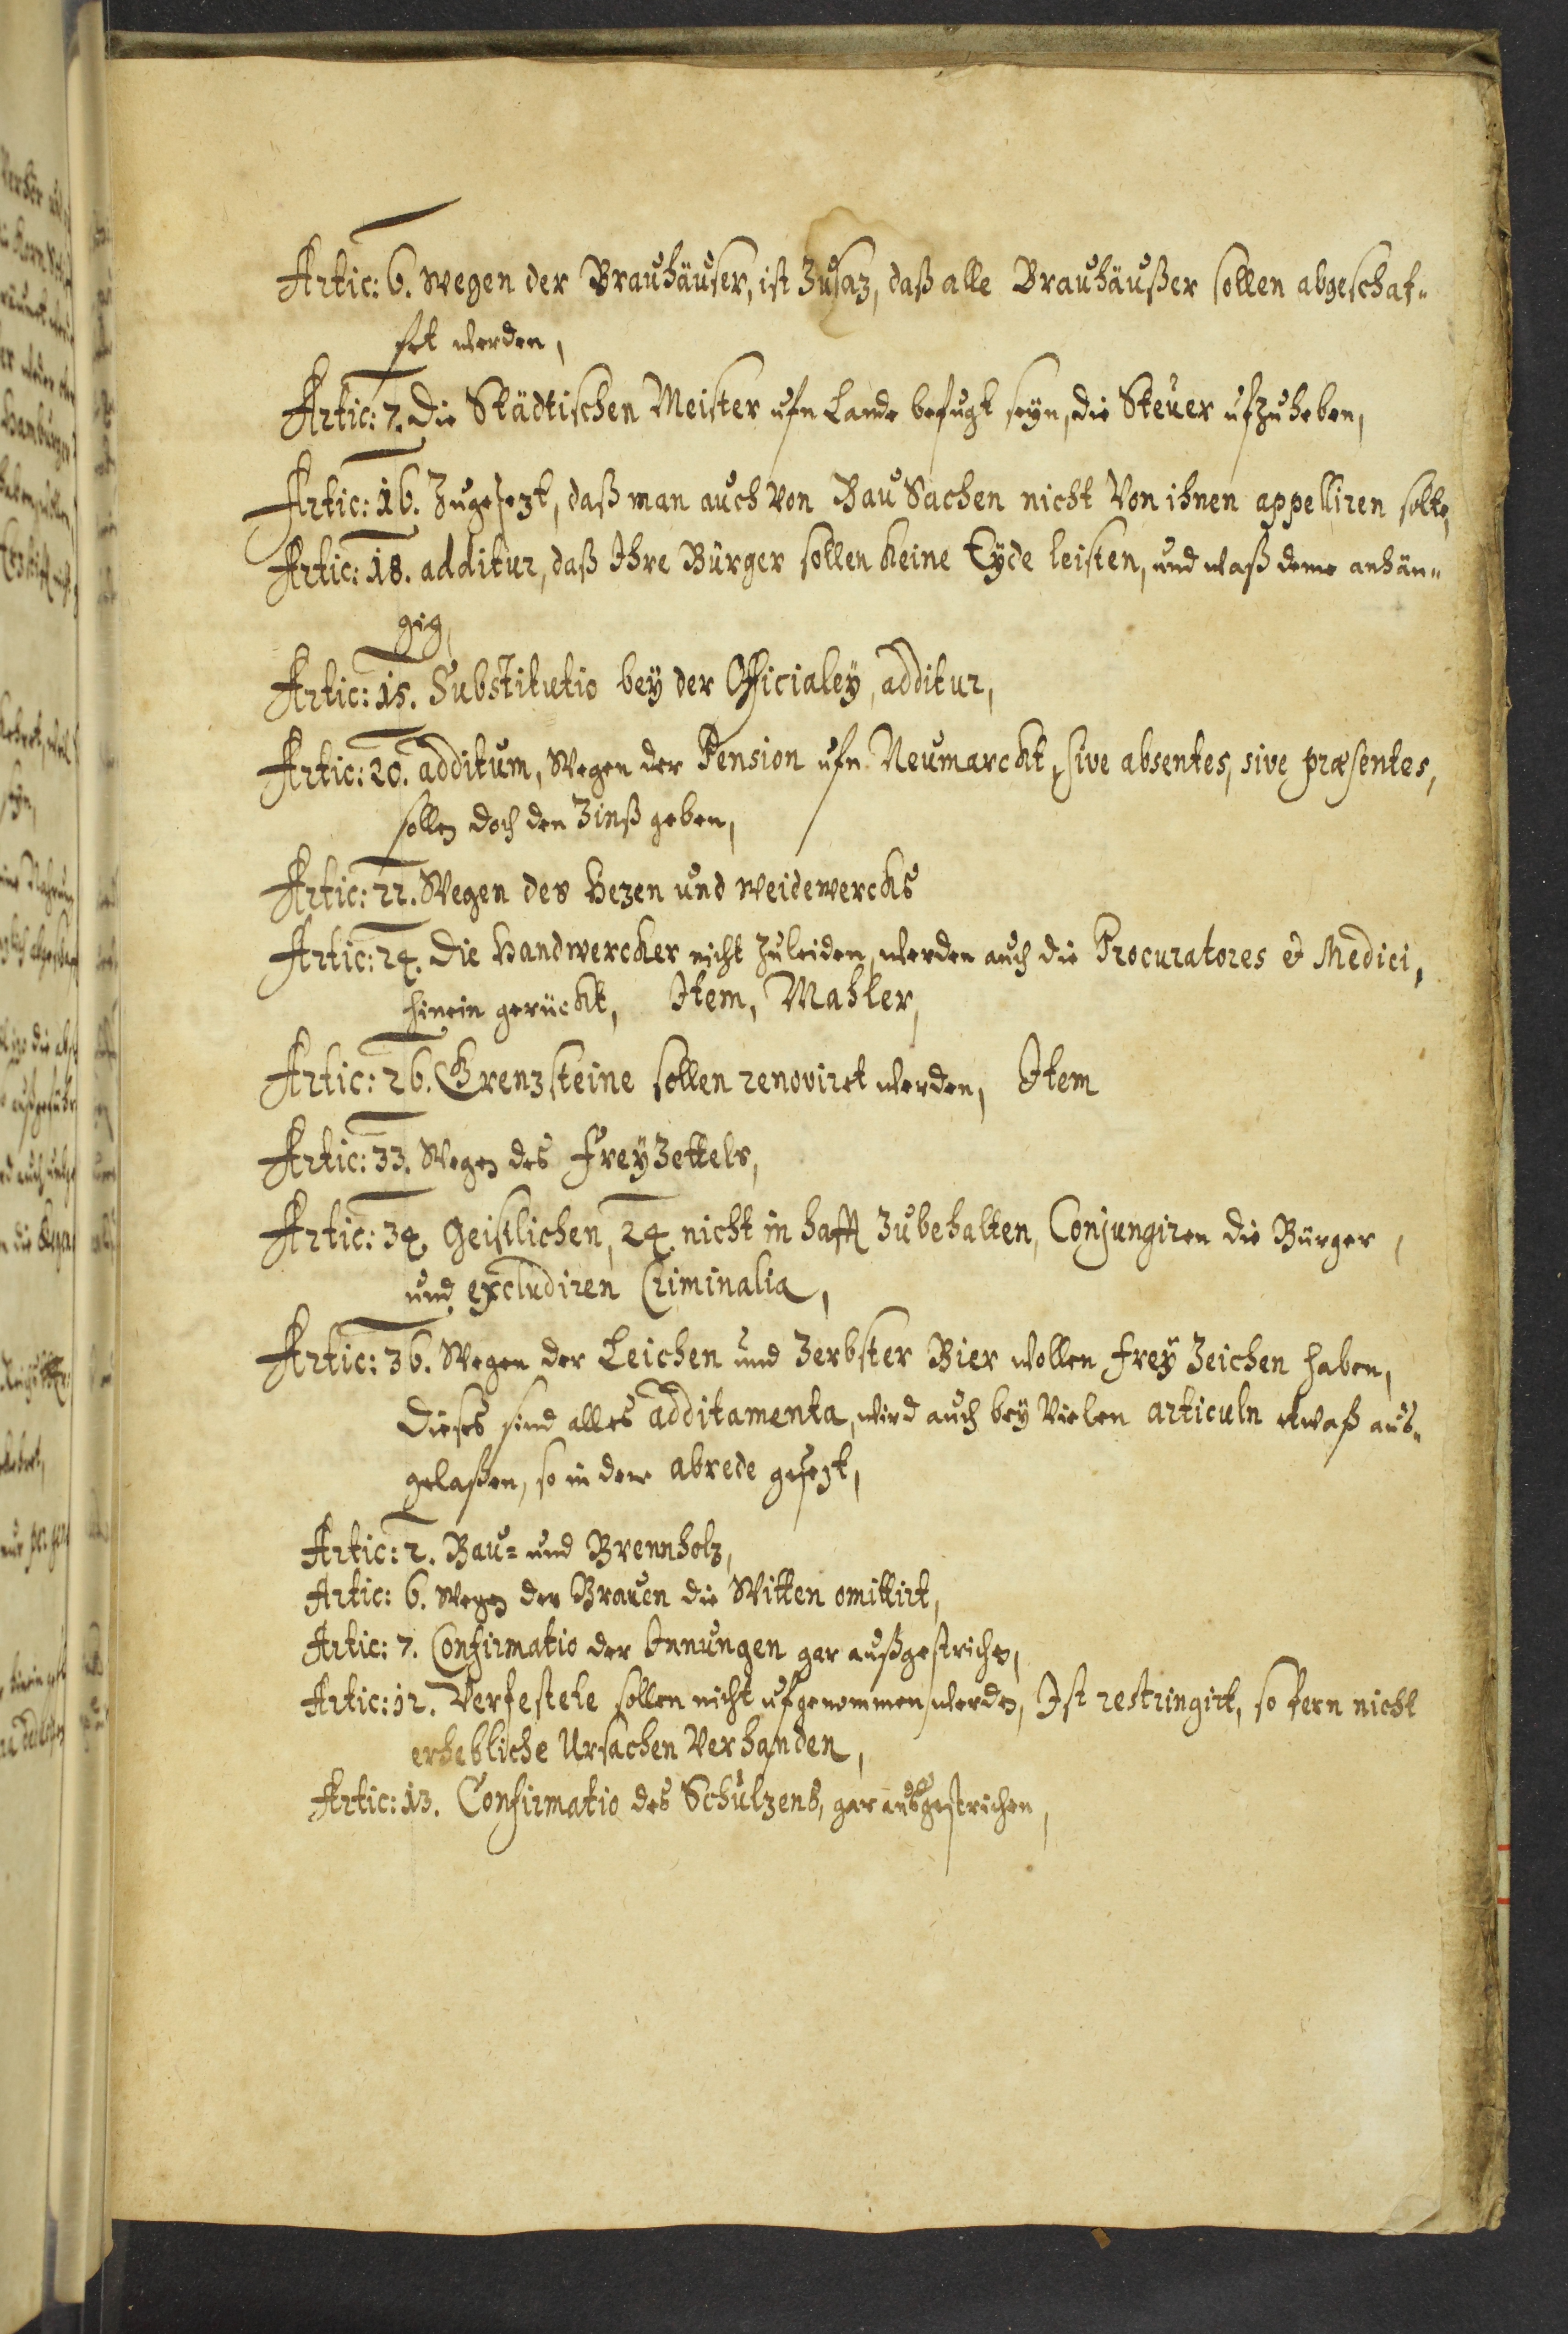 Artic: 6. wegen der Brauhäuser, ist Zusaz, daß alle Brauhäußer sollen abgeschaf-
fet werden,
Artic: 7. Die Städtischen Meister ufn Lande befugt seyn, die Steuer ufzuheben,
Artic: 16. Zugesezt, daß man auch von Bau Sachen nicht von ihnen appelliren solte,
Artic: 18. additur, daß Ihre Bürger sollen keine Eyde leisten, und waß deme anhän-
gig,
Artic: 15. Substitutio bey der Officialey, additur,
Artic: 20. additum, Wegen der Pension ufn Neumarckt, sive absentes, sive præsentes,
sollen doch den Zinß geben,
Artic: 22. Wegen des Hezen und weidewercks
Artic: 24. Die Handwercker nicht zuleiden, werden auch die Procuratores & Medici,
hinein gerückt, Item, Mahler,
Artic: 26. Grenzsteine sollen renoviret werden, Item
Artic: 33. Wegen des FreyZettels,
Artic: 34. Geistlichen, 24. nicht in hafft zubehalten, Conjungiren die Bürger,
und excludiren Criminalia,
Artic: 36. Wegen der Leichen und Zerbster Bier wollen frey Zeichen haben,
Dieses sind alles additamenta, wird auch bey vielen articuln etwaß aus-
gelaßen, so in der abrede gesezt,
Artic: 2. Bau- und Brennholz,
Artic: 6. Wegen des Brauen die Witten omittirt,
Artic: 7. Confirmatio der Innungen gar außgestrichen,
Artic: 12. Verfestete sollen nicht ufgenommen werden, Ist restringirt, so fern nicht
erhebliche Ursachen verhanden,
Artic: 13. Confirmatio des Schulzens, gar ausgestrichen,